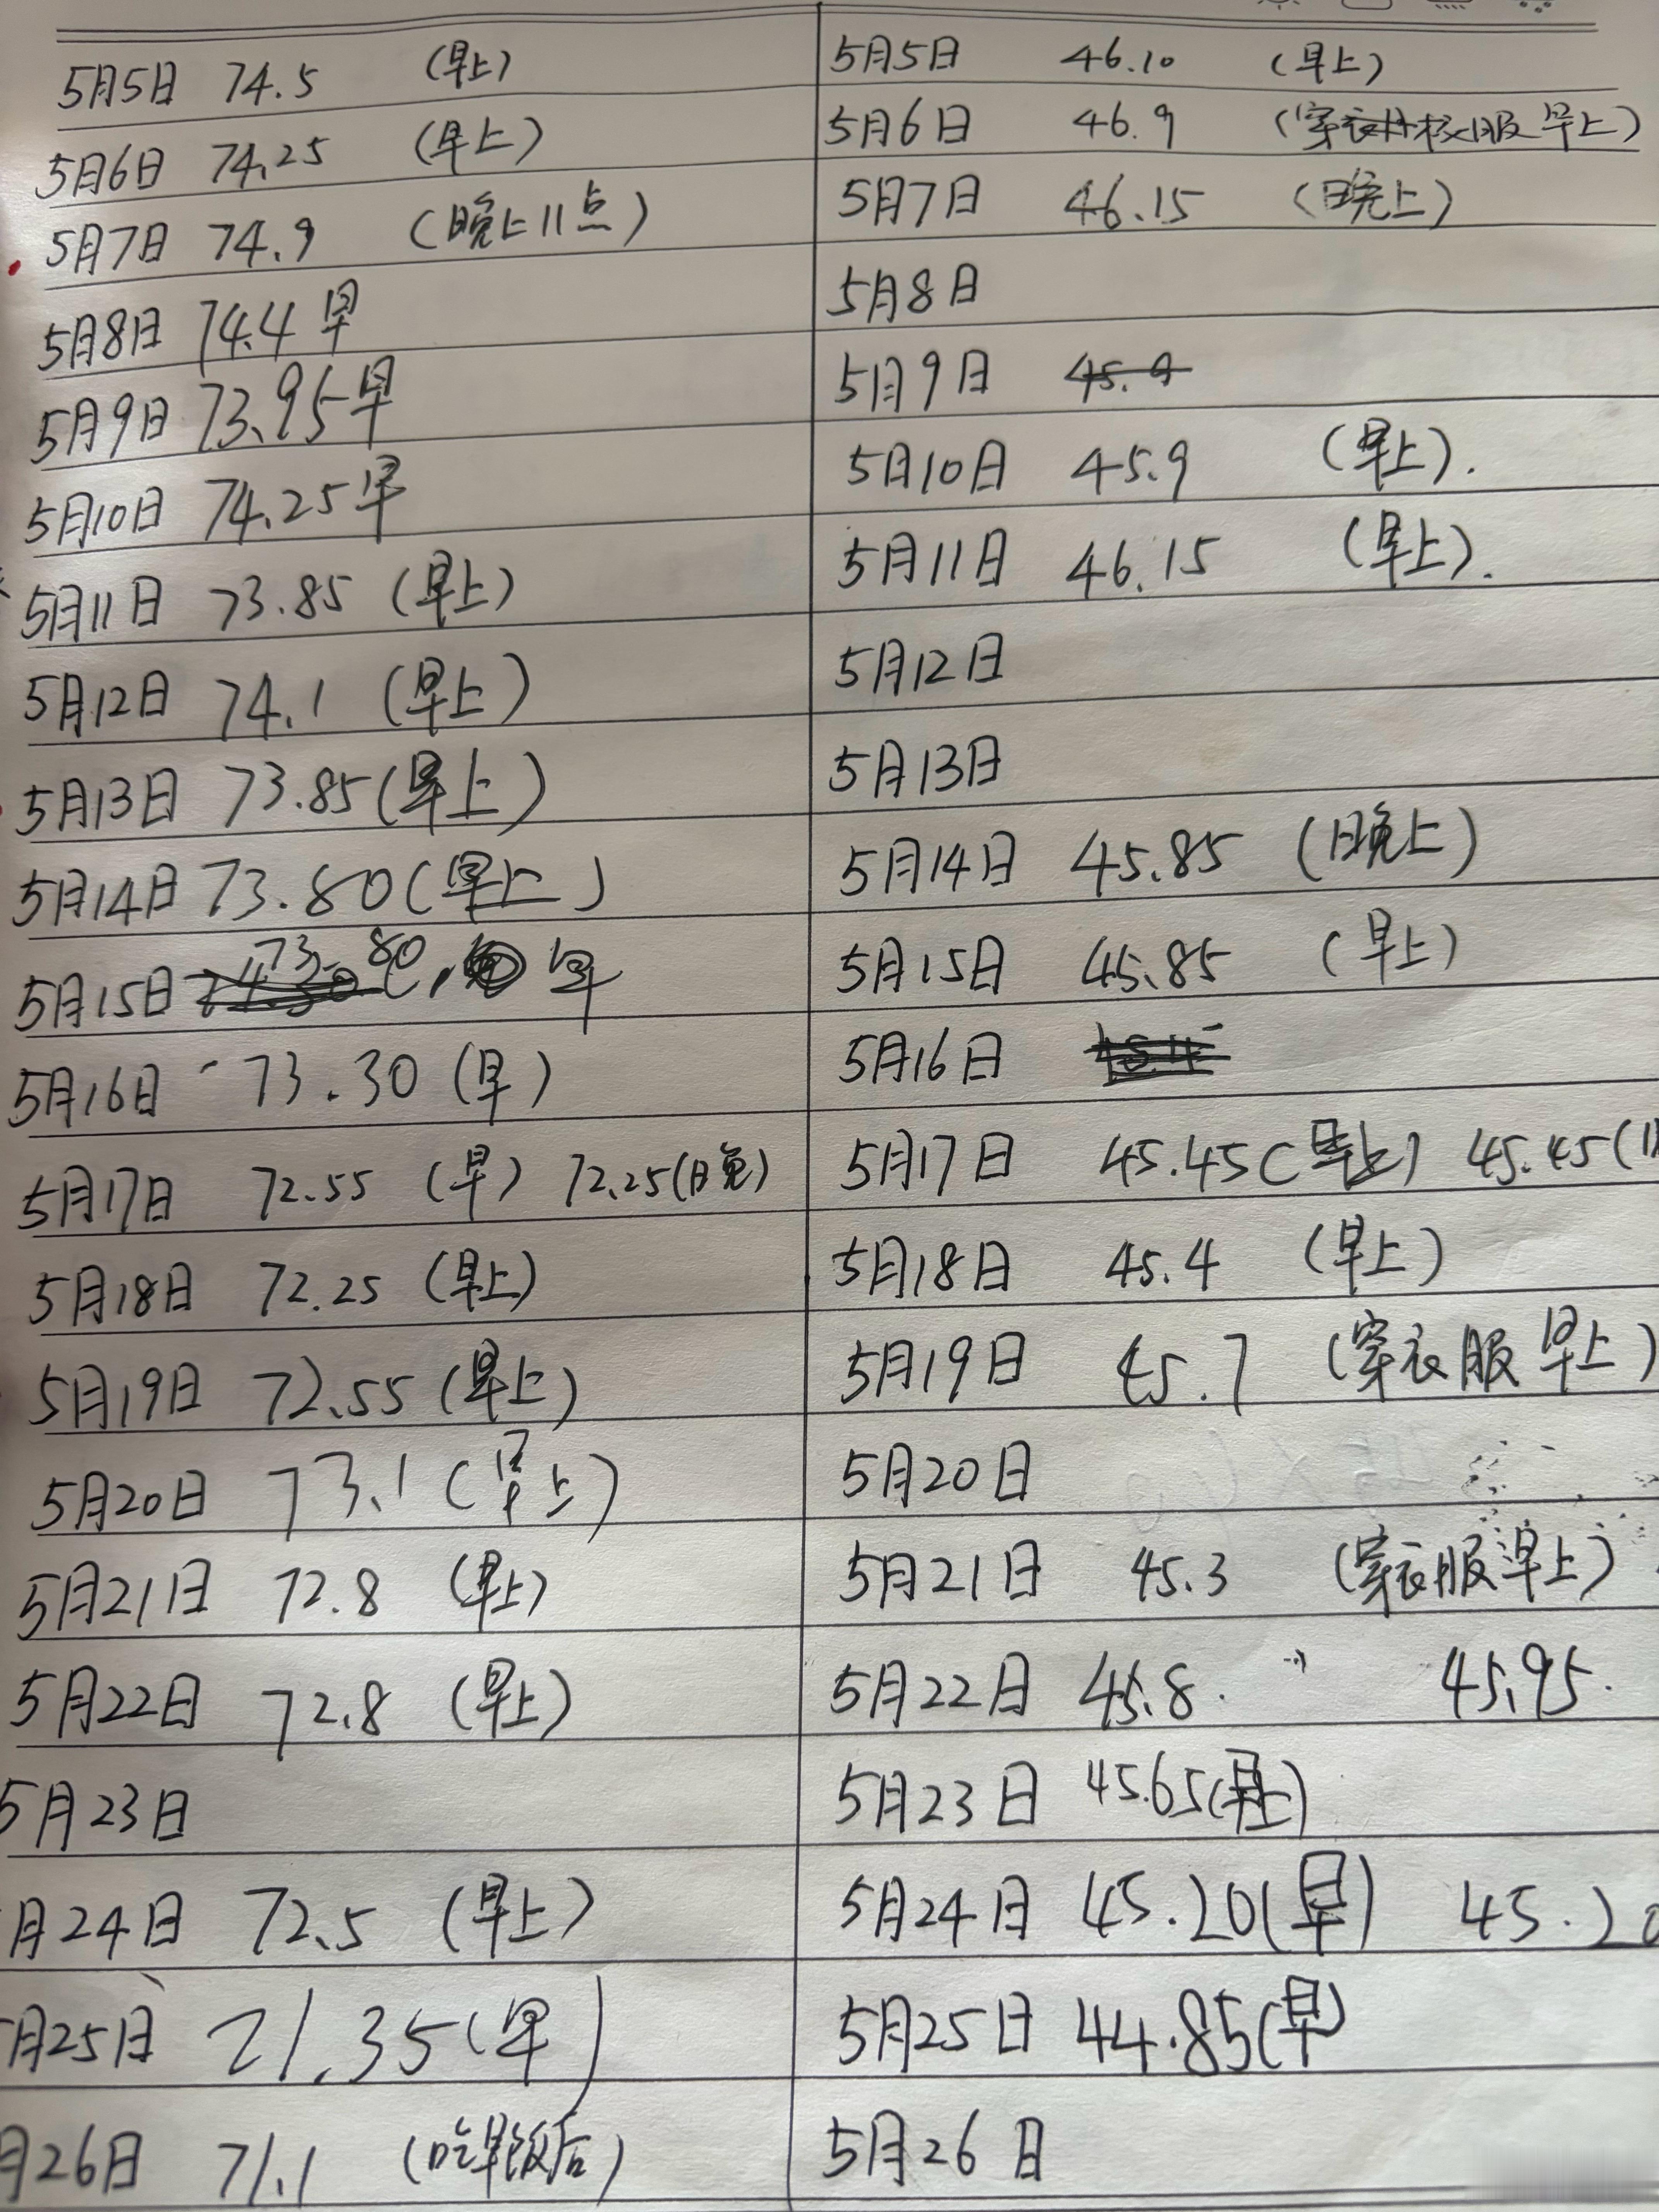 5月5日 74.5 (早上)
5月6日 74.25 (早上)
5月7日 74.9 (晚上11点)
5月8日 74.4 早
5月9日 73.95 早
5月10日 74.25 早
5月11日 73.85 (早上)
5月12日 74.1 (早上)
5月13日 73.85 (早上)
5月14日 73.80 (早上)
5月15日 73.80 早
5月16日 73.30 (早)
5月17日 72.55 (早) 72.25 (晚)
5月18日 72.25 (早上)
5月19日 72.55 (早上)
5月20日 73.1 (早上)
5月21日 72.8 (早上)
5月22日 72.8 (早上)
5月23日
月24日 72.5 (早上)
月25日 71.35 (早)
月26日 71.1 (吃早饭后)
5月5日 46.10 (早上)
5月6日 46.9 (穿衣服 早上)
5月7日 46.15 (晚上)
5月8日
5月9日 45.9
5月10日 45.9 (早上).
5月11日 46.15 (早上).
5月12日
5月13日
5月14日 45.85 (晚上)
5月15日 45.85 (早上)
5月16日
5月17日 45.45 (早上) 45.45 (
5月18日 45.4 (早上)
5月19日 45.7 (穿衣服 早上)
5月20日
5月21日 45.3 (穿衣服 早上)
5月22日 45.8. 45.95.
5月23日 45.65 (早上)
5月24日 45.20 (早) 45.20
5月25日 44.85 (早)
5月26日